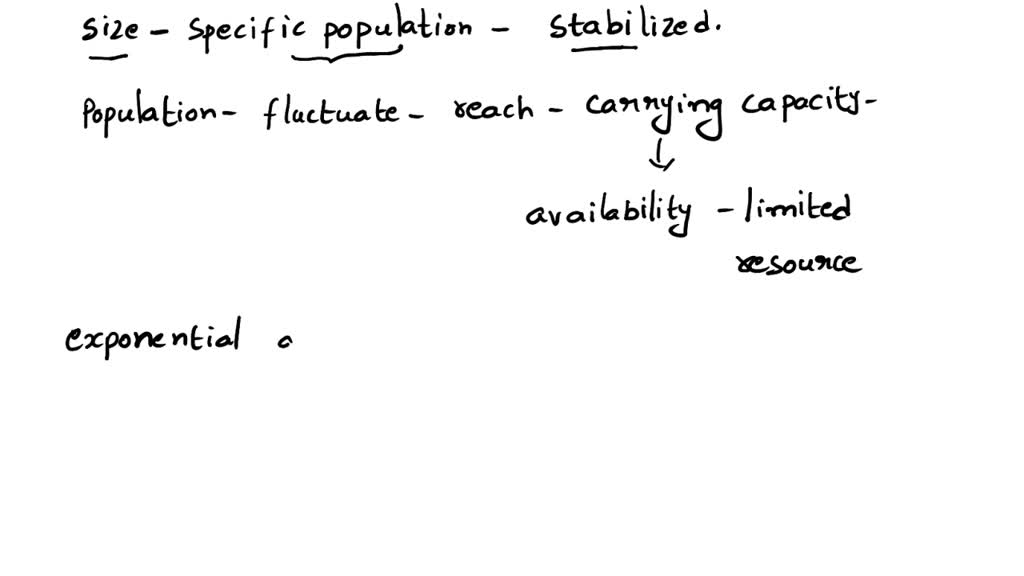 Size - Specific population - Stabilized.
Population - fluctuate - reach - carrying capacity -
availability - limited
resource
exponential